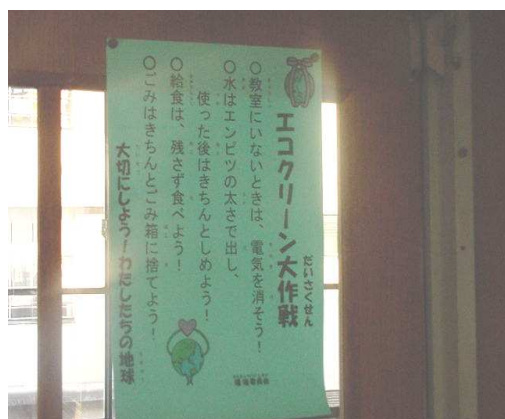 エコクリーン大作戦
だいさくせん
○教室にいないときは、電気を消そう！
○水はエンピツの太さで出し、
使った後はきちんとしめよう！
○給食は、残さず食べよう！
○ごみはきちんとごみ箱に捨てよう！
大切にしよう！わたしたちの地球